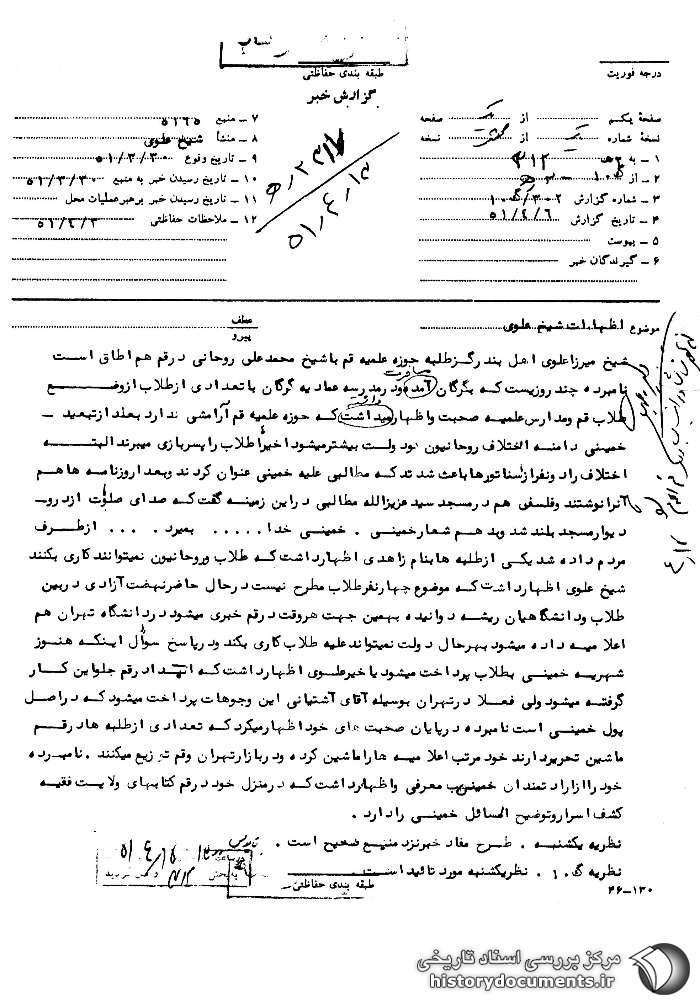 طبقه بندی حفاظتی
درجه فوریت
گزارش خبر
صفحهٔ یکم از یک صفحه
نسخهٔ شماره یک از نسخه
۱ – به ۳۱۲
۲ – از
۳ – شماره گزارش
۴ – تاریخ گزارش ۵۱/۴/۶
۵ – پیوست
۶ – گیرندگان خبر
۷ – منبع ۵۱۶۵
۸ – منشأ شیخ علوی
۹ – تاریخ وقوع ۵۱/۳/۳۰
۱۰ – تاریخ رسیدن خبر به منبع ۵۱/۳/۳۰
۱۱ – تاریخ رسیدن خبر برهبر عملیات محل
۱۲ – ملاحظات حفاظتی ۵۱/۴/۳
۵۱٫۴٫۱۳
موضوع اظهارات شیخ علوی
عطف
پیرو
شیخ میرزا علوی اهل بندرگز طلبه حوزه علمیه قم با شیخ محمدعلی روحانی در قم هم اطاق است
نامبرده چند روزیست که بگرگان آمده ودر مدرسه عمادیه گرگان با تعدادی از طلاب از وضع
طلاب قم ومدارس علمیه صحبت واظهار میداشت که حوزه علمیه قم آرامشی ندارد بعد از تبعید –
خمینی دامنه اختلاف روحانیون ودولت بیشتر میشود اخیراً طلاب را بسربازی میبرند البته
اختلاف راد ونفر از سناتورها باعث شدند که مطالبی علیه خمینی عنوان کردند وبعد از روزنامه ها هم
آنرا نوشتند وفلسفی هم در مسجد سید عزیزالله مطالبی در این زمینه گفت که صدای صلوٰت از در و –
دیوار مسجد بلند شد وبد هم شعار خمینی . خمینی خدا ..... بمیرد . ... از طرف
مردم داده شد یکی از طلبه ها بنام زاهدی اظهار داشت که طلاب وروحانیون نمیتوانند کاری بکنند
شیخ علوی اظهار داشت که موضوع چهار نفر طلاب مطرح نیست در حال حاضر نهضت آزادی در بین
طلاب ودانشگاهیان ریشه دوانیده بهمین جهت هر وقت در قم خبری میشود در دانشگاه تهران هم
اعلامیه داده میشود بهر حال دولت نمیتواند علیه طلاب کاری بکند ودر پاسخ سوٰال اینکه هنوز
شهریه خمینی بطلاب پرداخت میشود یا خیر علوی اظهار داشت که ابتدا در قم جلو این کار
گرفته میشود ولی فعلا در تهران بوسیله آقای آشتیانی این وجوهات پرداخت میشود که در اصل
پول خمینی است نامبرده در پایان صحبت های خود اظهار میکرد که تعدادی از طلبه ها در قم
ماشین تحریر دارند خود مرتب اعلامیه ها را ماشین کرده ودر بازار تهران وقم توزیع میکنند . نامبرده
خود را از ارادتمندان خمینی معرفی واظهار داشت که در منزل خود در قم کتابهای ولایت فقیه
کشف اسرار وتوضیح المسائل خمینی را دارد .
نظریه یکشنبه . طرح مفاد خبر نزد منبع صحیح است .
نظریه گ . ۱۰ . نظر یکشنبه مورد تائید است .
طبقه بندی حفاظتی
۲۶–۱۳۰
مرکز بررسی اسناد تاریخی
historydocuments.ir